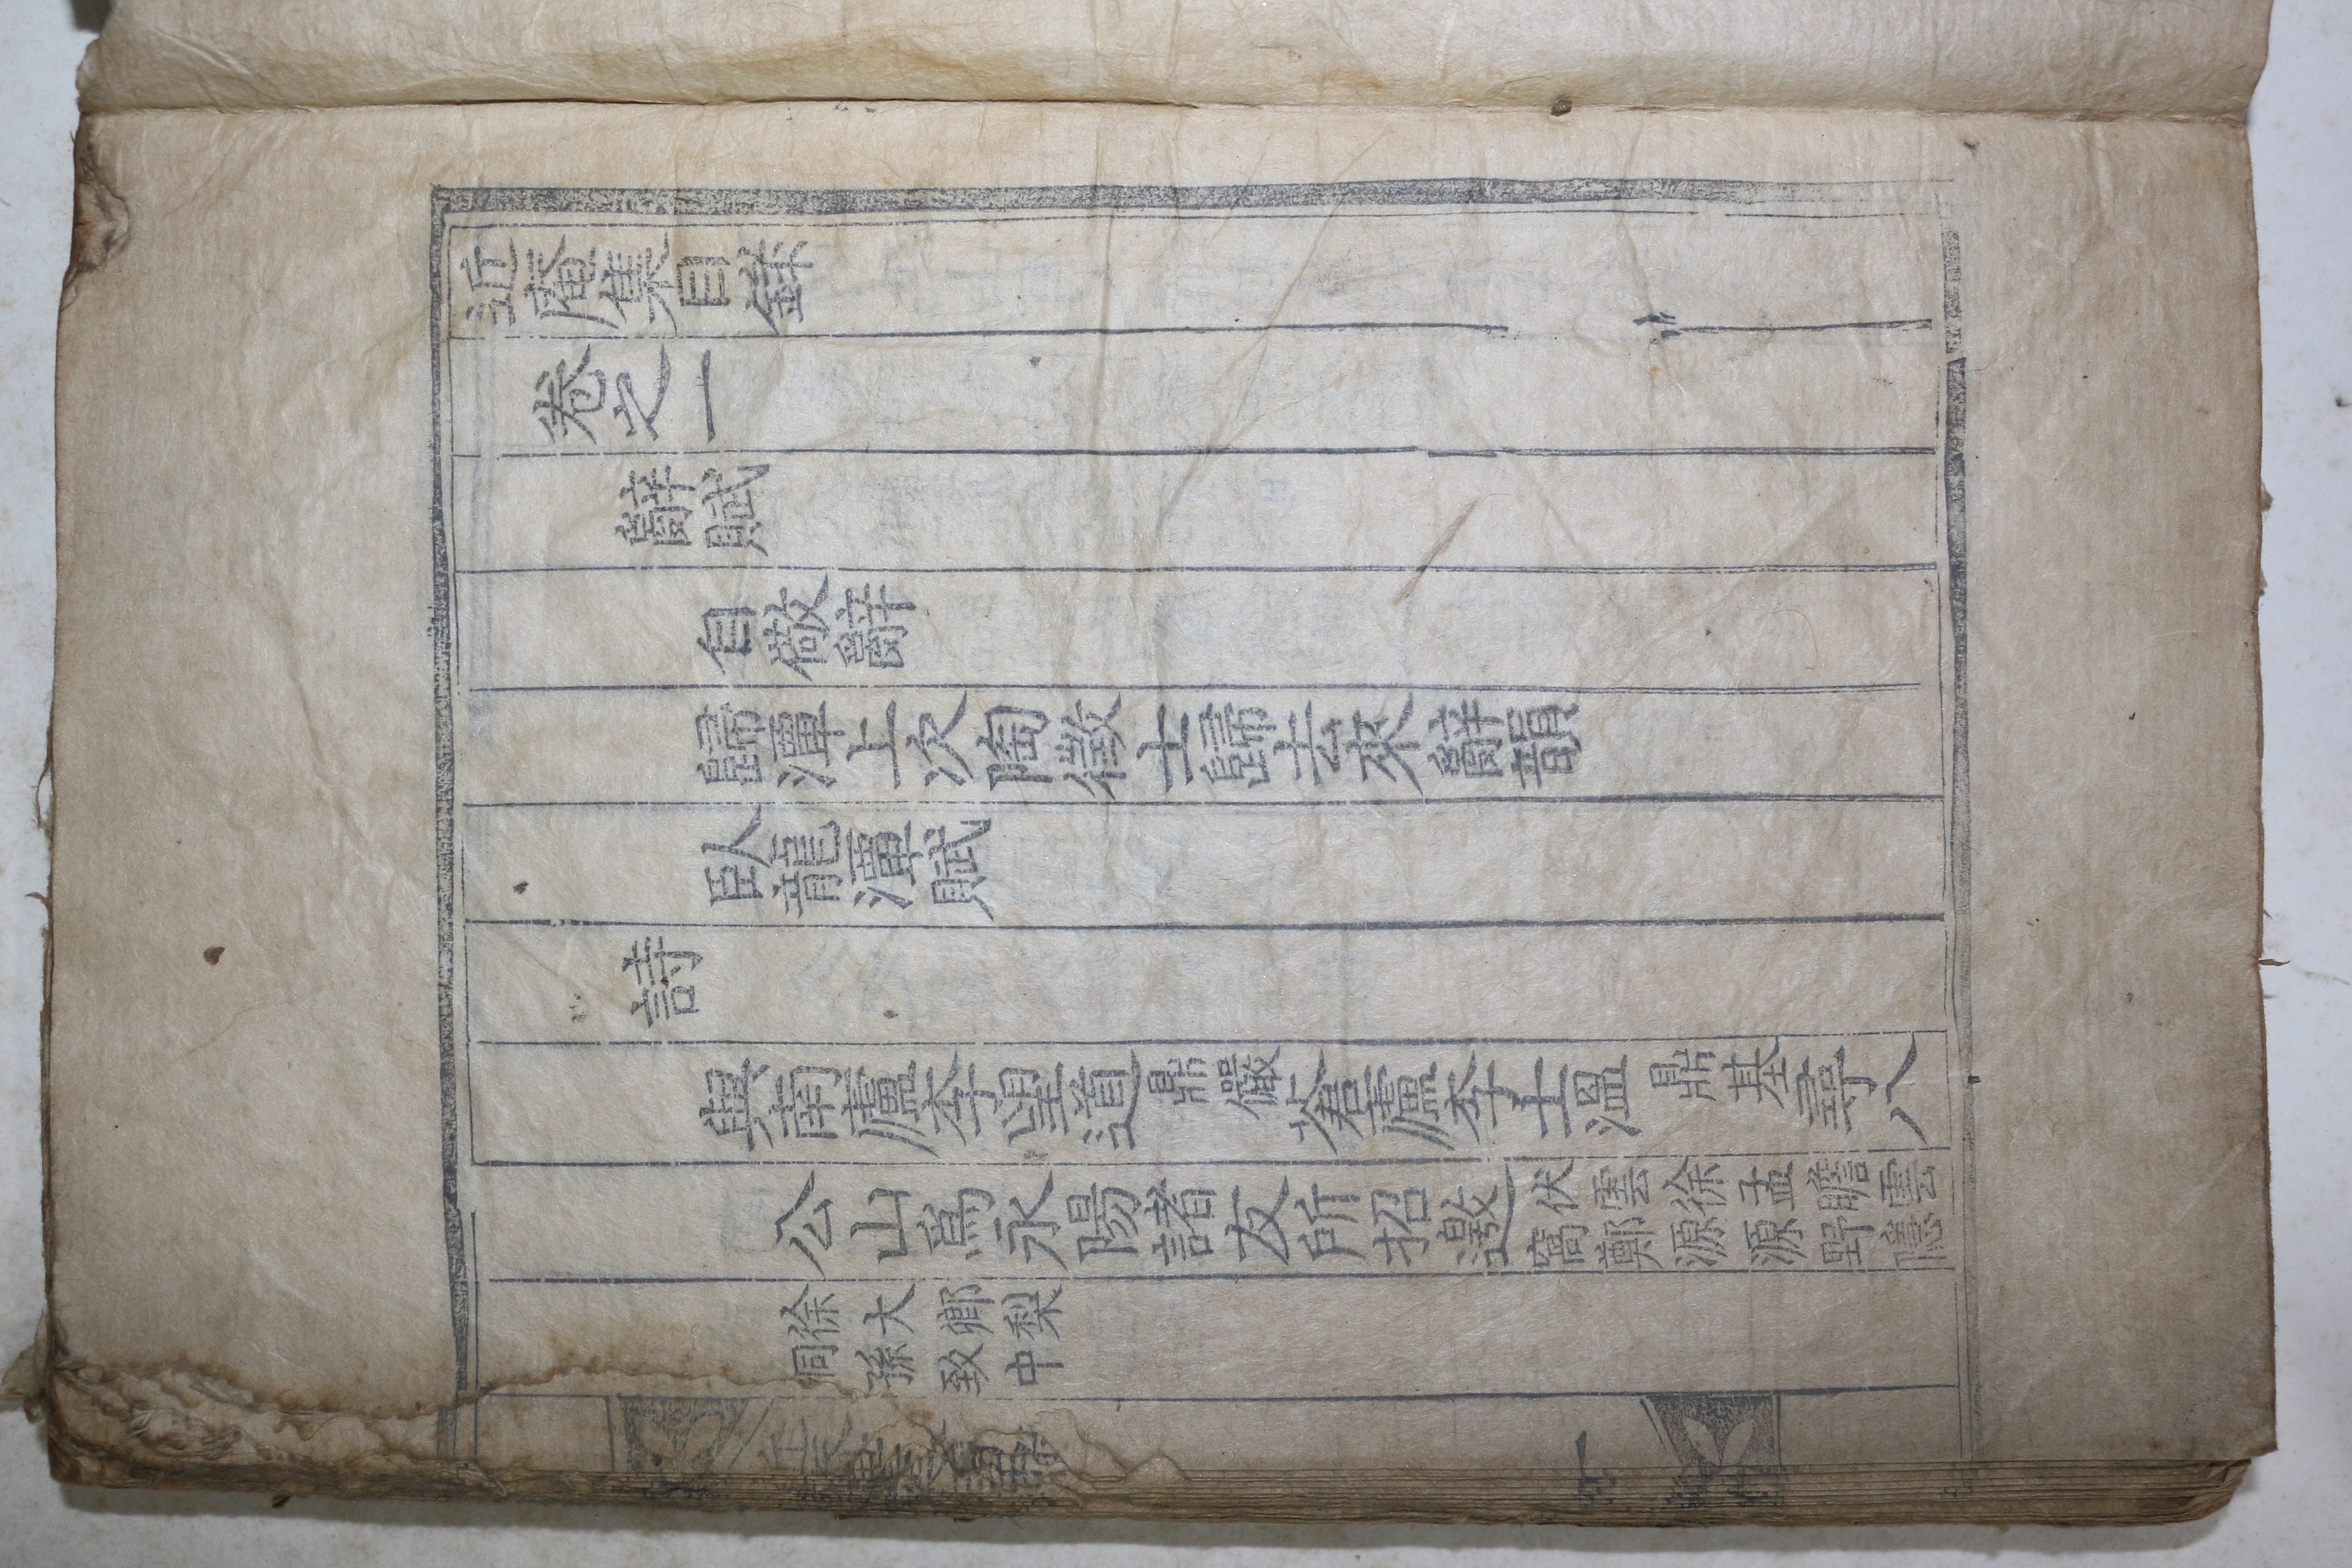 近庵集目錄
卷之一
辭賦
自儆辭
歸潭上次陶徵士歸去來辭韻
臥龍潭賦
詩
與南廬李望道鼎儼蒼廬李士溫鼎基尋八
公山爲永陽諸友所招邀伏雲徐孟瞻雲
窩鄭源源野隱
徐大鄉梨
洞孫致中